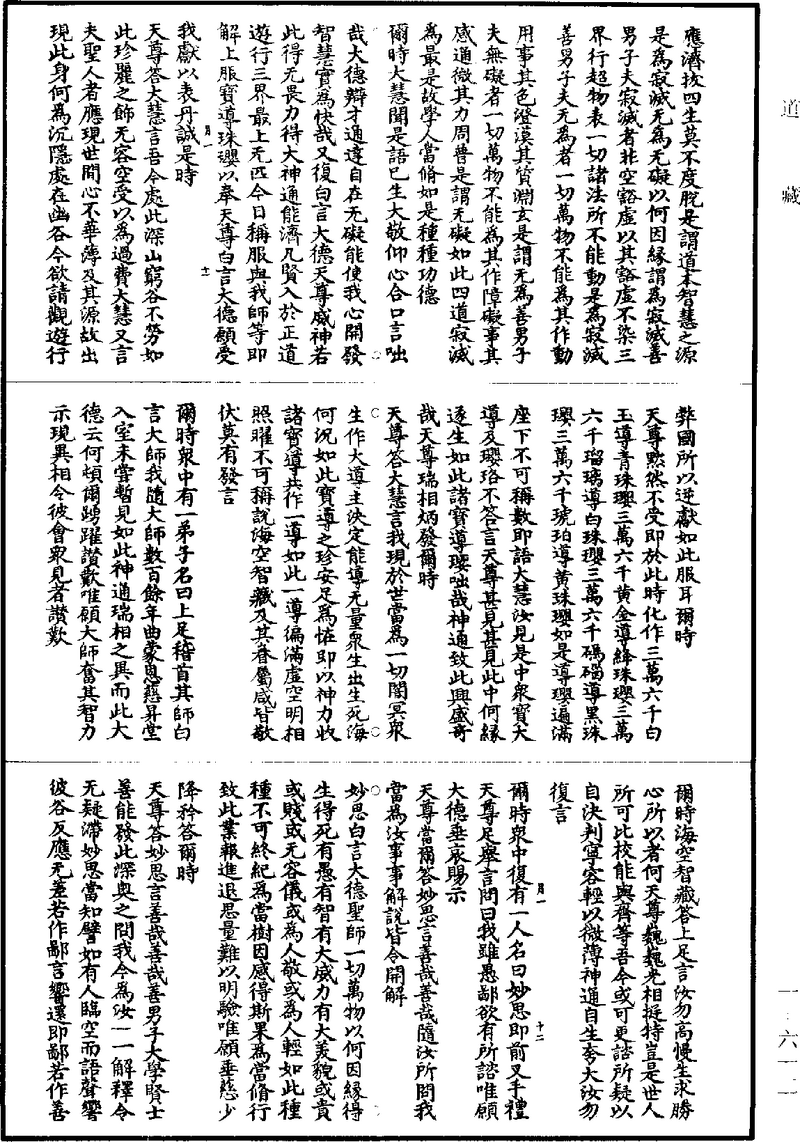 道藏
一·六一二
應濟拔四生莫不度脫是謂道本智慧之源
是為寂滅无為无礙以何因緣謂為寂滅善
男子夫寂滅者非空豁虛以其豁虛不染三
界行超物表一切諸法所不能動是為寂滅
善男子夫无為者一切萬物不能為其作動
用事其色澄漠其質淵玄是謂无為善男子
夫無礙者一切萬物不能為其作障礙事其
感通微其力周普是謂无礙如此四道寂滅
為最是故學人當脩如是種種功德
爾時大慧聞是語已生大敬仰心合口言咄
哉大德辯才通達自在无礙能使我心開發
智慧實為快哉又復白言大德天尊威神若
此得无畏力得大神通能濟凡賢入於正道
遊行三界最上无匹今日稱服與我師等即
解上服寶導珠瓔以奉天尊白言大德願受
我獻以表丹誠是時
天尊答大慧言吾今處此深山窮谷不勞如
此珍麗之飾无容空受以為過費大慧又言
夫聖人者應現世間心不華薄及其源故出
現此身何為沉隱處在幽谷今欲請觀遊行
弊國所以逆獻如此服耳爾時
天尊默然不受即於此時化作三萬六千白
玉導青珠瓔三萬六千黃金導絳珠瓔三萬
六千瑠璃導白珠瓔三萬六千碼碯導黑珠
瓔三萬六千琥珀導黃珠瓔如是導瓔遍滿
座下不可稱數即語大慧汝見是中衆寶大
導及瓔珞不答言天尊甚見甚見此中何緣
遂生如此諸寶導瓔咄哉神通致此興盛奇
哉天尊瑞相炳發爾時
天尊答大慧言我現於世當為一切闇冥衆
生作大導主決定能導无量衆生出生死海
何況如此寶導之珍安足為恠即以神力收
諸寶導共作一導如此一導徧滿虛空明相
照曜不可稱說海空智藏及其眷屬咸皆敬
伏莫有發言
爾時衆中有一弟子名曰上足稽首其師白
言大師我隨大師數百餘年曲蒙恩慈昇堂
入室未甞暫見如此神通瑞相之異而此大
德云何頓爾踴躍讚歎唯願大師奮其智力
示現異相令彼會衆見者讚歎
爾時海空智藏答上足言汝勿高慢生求勝
心所以者何天尊巍巍光相挺特豈是世人
所可比校能與齊等吾今或可更諮所疑以
自決判寧容輕以微薄神通自生夸大汝勿
復言
爾時衆中復有一人名曰妙思即前叉手禮
天尊足舉言問曰我雖愚鄙欲有所諮唯願
大德垂哀賜示
天尊當爾答妙思言善哉善哉隨汝所問我
當為汝事事解說皆令開解
妙思白言大德聖師一切萬物以何因緣得
生得死有愚有智有大威力有大美貌或貴
或賤或无容儀或為人敬或為人輕如此種
種不可終紀為當樹因感得斯果為當脩行
致此業報進退思量難以明驗唯願垂慈少
降矜答爾時
天尊答妙思言善哉善哉善男子大學賢士
善能發此深奥之問我今為汝一一解釋令
无疑滯妙思當知譬如有人臨空而語聲響
彼谷反應无差若作鄙言響還即鄙若作善